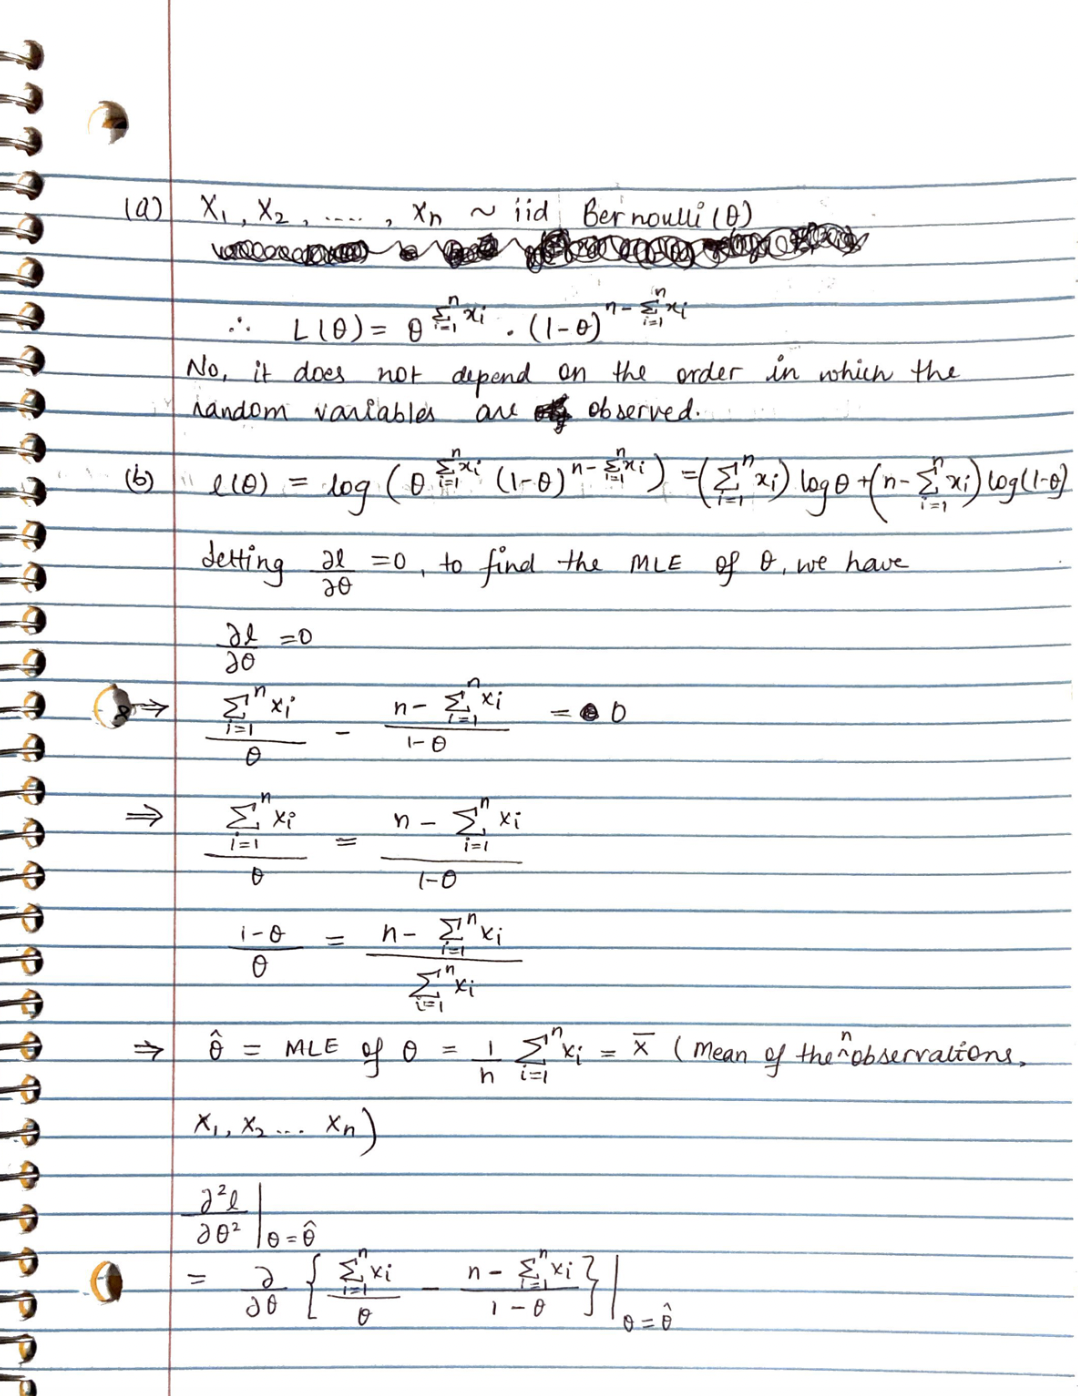 (a) X₁, X₂, ....., Xn ~ iid Bernoulli(θ)
∴ L(θ) = θ^{Σ_{i=1}^{n} xi} · (1-θ)^{n-Σ_{i=1}^{n} xi}
No, it does not depend on the order in which the
random variables are observed.
(b) l(θ) = log (θ^{Σ_{i=1}^{n} xi} (1-θ)^{n-Σ_{i=1}^{n} xi}) = (Σ_{i=1}^{n} xi) logθ + (n-Σ_{i=1}^{n} xi) log(1-θ)
Setting ∂l/∂θ = 0, to find the MLE of θ, we have
∂l/∂θ = 0
⇒ (Σ_{i=1}^{n} xi)/θ - (n-Σ_{i=1}^{n} xi)/(1-θ) = 0
⇒ (Σ_{i=1}^{n} xi)/θ = (n-Σ_{i=1}^{n} xi)/(1-θ)
(1-θ)/θ = (n-Σ_{i=1}^{n} xi)/(Σ_{i=1}^{n} xi)
⇒ θ̂ = MLE of θ = 1/n Σ_{i=1}^{n} xi = X̄ (Mean of the n observations,
X₁, X₂ ... Xn)
∂²l/∂θ² |_{θ=θ̂}
= ∂/∂θ {(Σ_{i=1}^{n} xi)/θ - (n-Σ_{i=1}^{n} xi)/(1-θ)}|_{θ=θ̂}